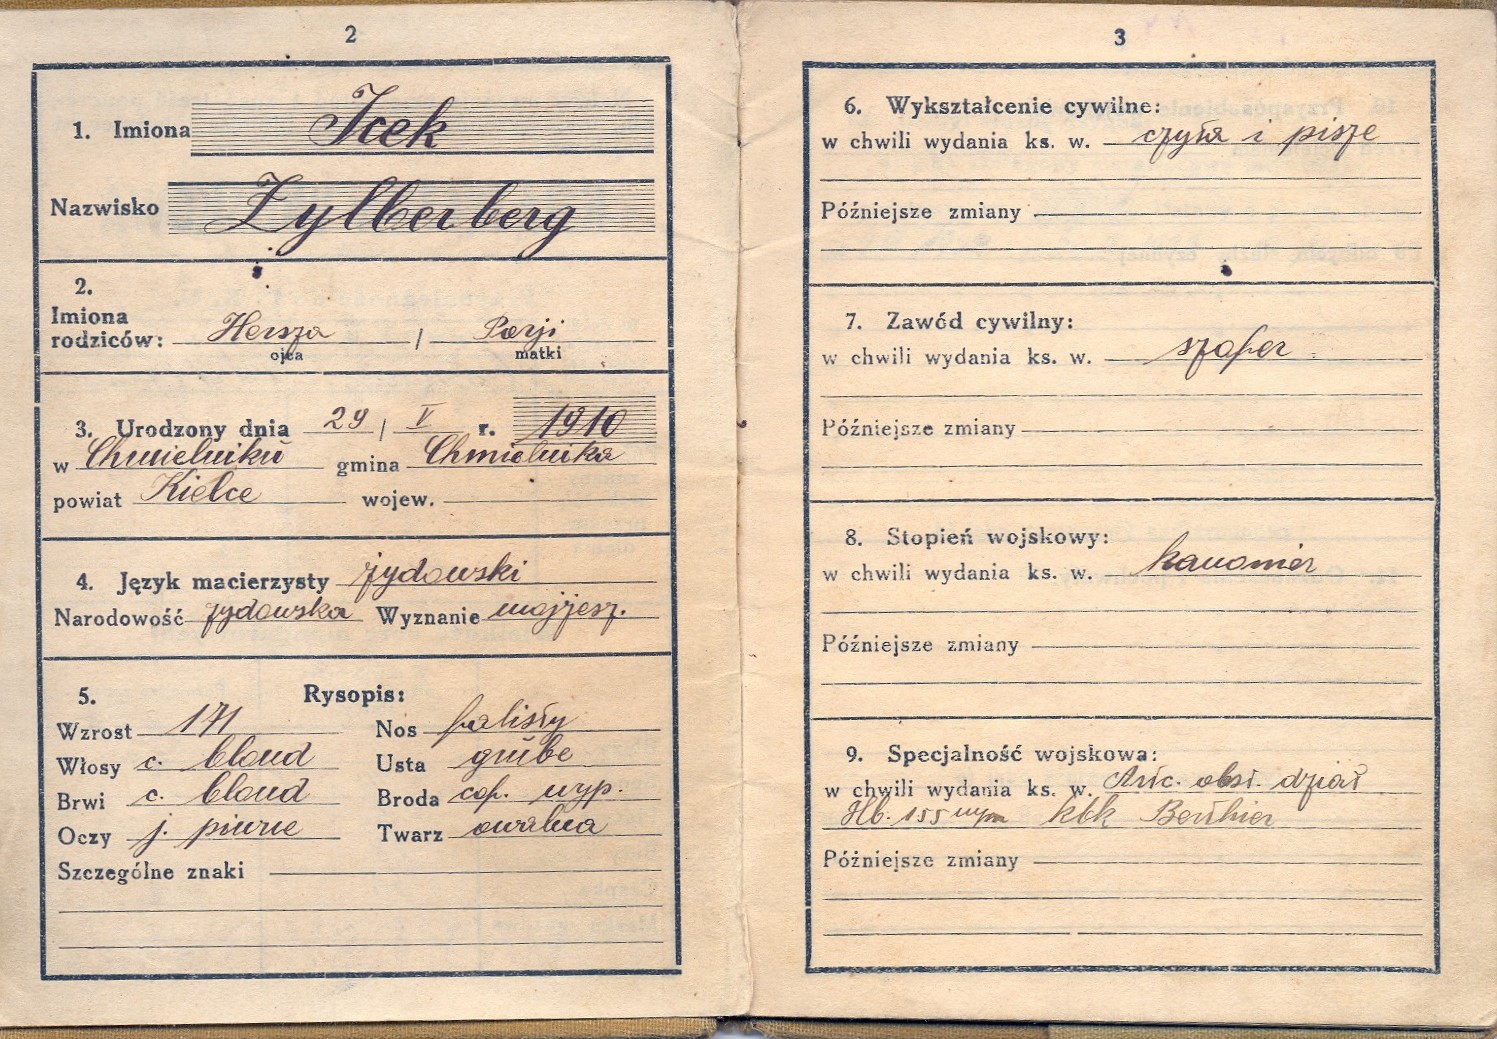 2
1. Imiona Icek
Nazwisko Zylberberg
2.
Imiona
rodziców: Hersza / Perji
ojca matki
3. Urodzony dnia 29 / V r. 1910
w Chmielniku gmina Chmielnika
powiat Kielce wojew.
4. Język macierzysty żydowski
Narodowość żydowska Wyznanie mojżesz.
5. Rysopis:
Wzrost 171 Nos
Włosy c. blond Usta grube
Brwi c. blond Broda wyp.
Oczy j. piwne Twarz owalna
Szczególne znaki
3
6. Wykształcenie cywilne:
w chwili wydania ks. w. czyta i pisze
Późniejsze zmiany
7. Zawód cywilny:
w chwili wydania ks. w. szofer
Późniejsze zmiany
8. Stopień wojskowy:
w chwili wydania ks. w. kanonier
Późniejsze zmiany
9. Specjalność wojskowa:
w chwili wydania ks. w. Art. obsł. dział
Hb. 155 m/m kbk Berthier
Późniejsze zmiany